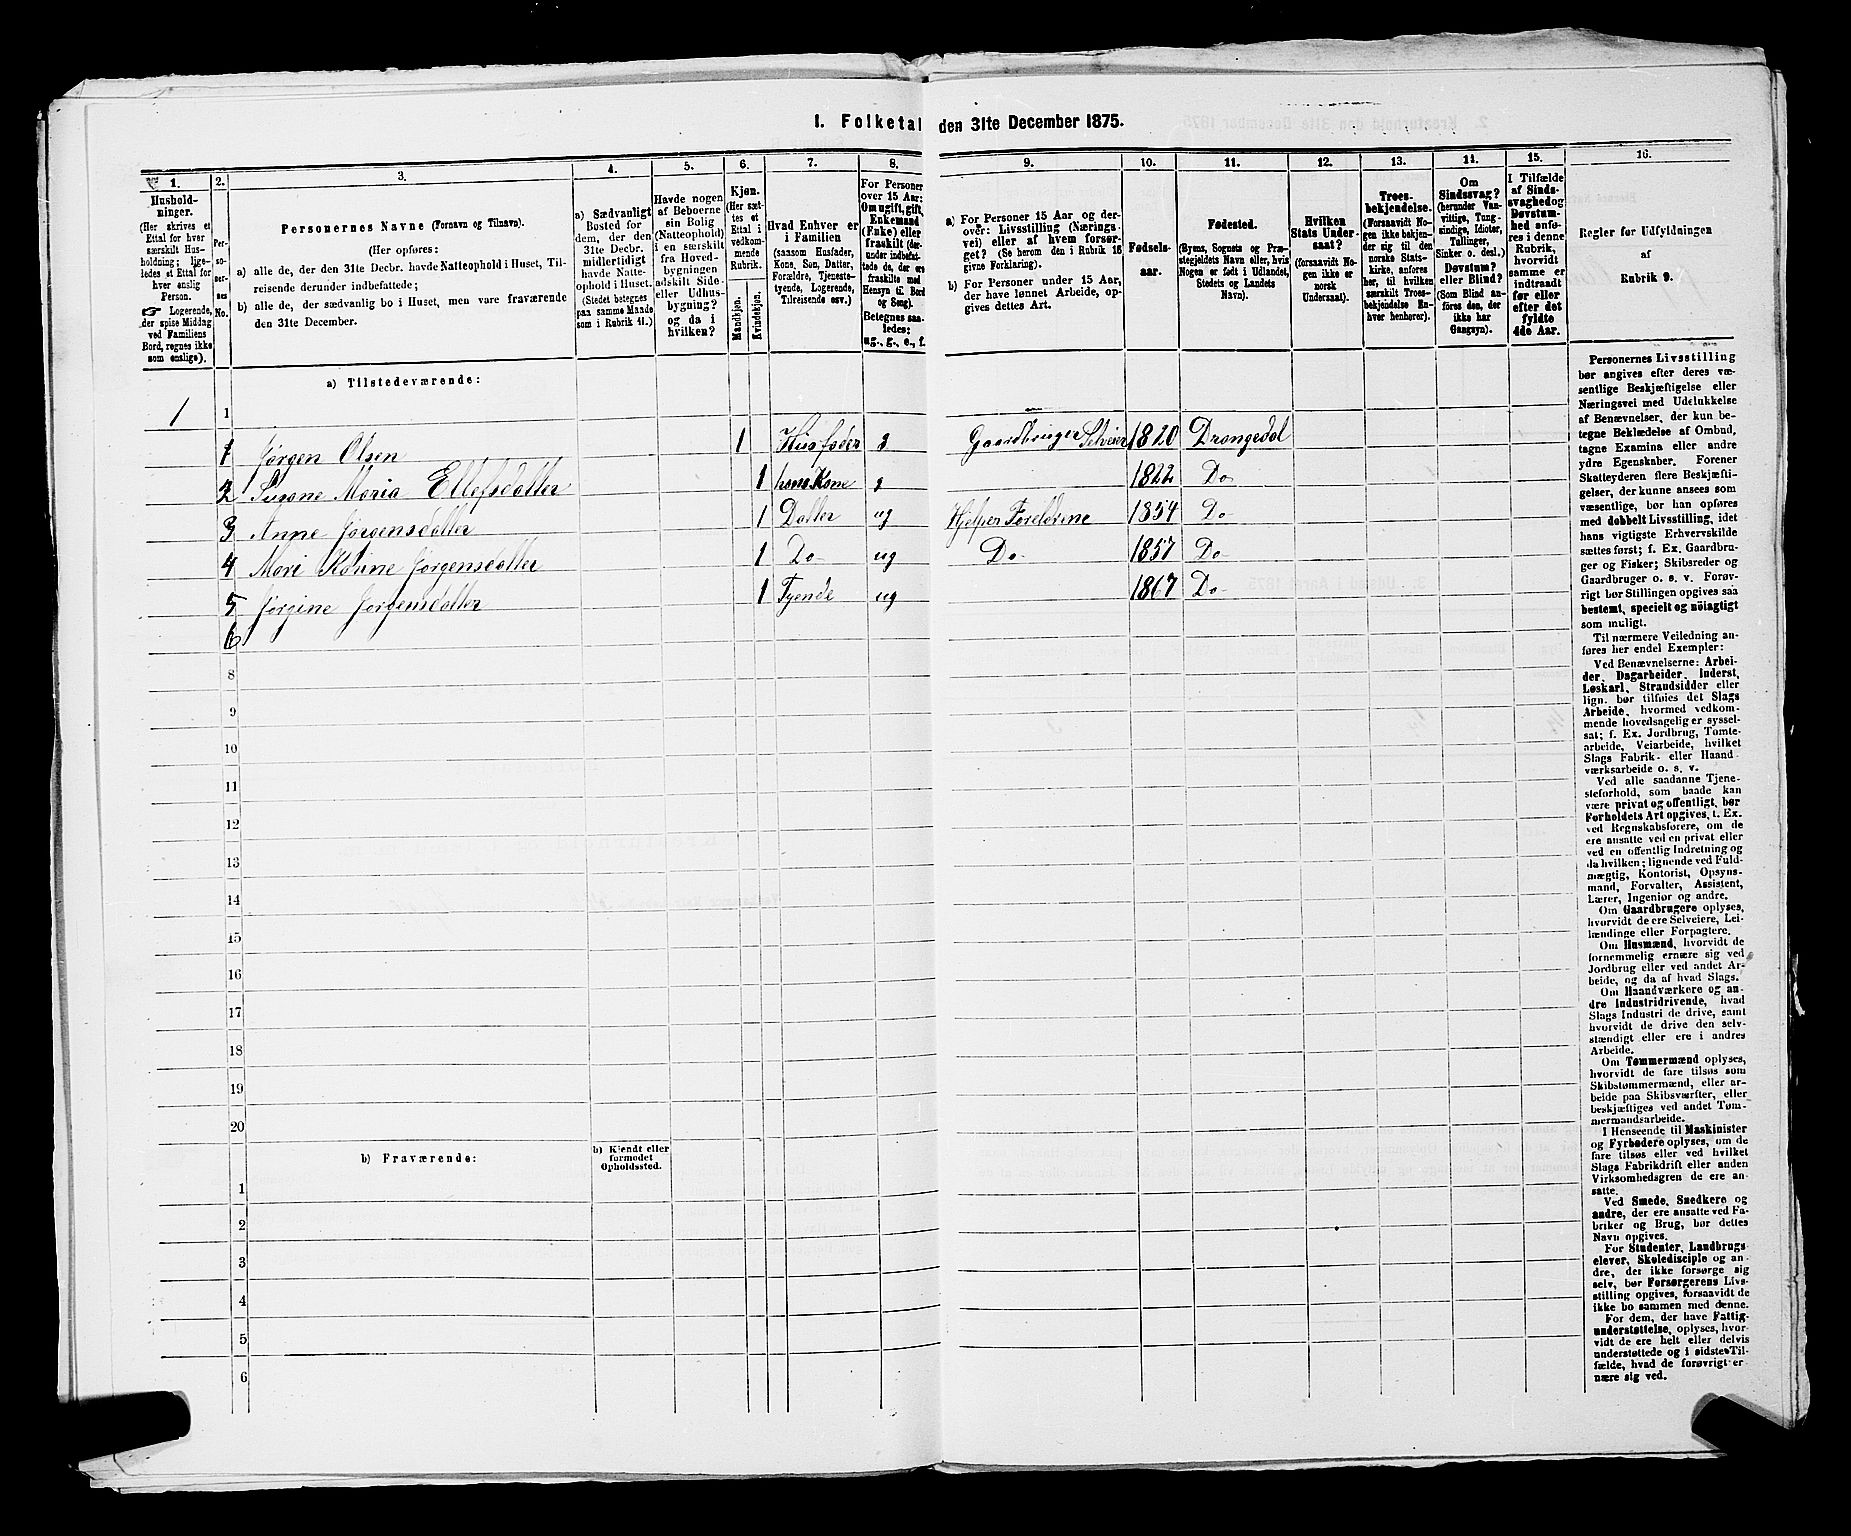 1. Folketal den 31te December 1875.
1. 2. 3. 4. 5. 6. 7. 8. 9. 10. 11. 12. 13. 14. 15. 16.
Hushold-
ninger.
(Her skrives et
Ettal for hver
særskilt Hus-
holdning; lige-
ledes et Ettal for
hver enslig
Person.
☞ Logerende,
der spise Middag
ved Familiens
Bord, regnes ikke
som enslige).
Per-
so-
ner-
nes
No.
Personernes Navne (Fornavn og Tilnavn).
(Her opføres:
a) alle de, der den 31te Decbr. havde Natteophold i Huset, Til-
reisende derunder indbefattede;
b) alle de, der sædvanlig bo i Huset, men vare fraværende
den 31te December.
a) Sædvanligt
Bosted for
dem, der den
31te Decbr.
midlertidigt
havde Natte-
ophold i Huset.
(Stedet betegnes
paa samme Maade
som i Rubrik 11.)
Havde nogen
af Beboerne
sin Bolig
(Natteophold)
i en særskilt
fra Hoved-
bygningen
adskilt Side-
eller Udhus-
bygning?
og da i
hvilken?
Kjøn.
(Her sæt-
tes et
Ettal i
vedkom-
mende
Rubrik.
Mandkjøn.
Kvindekjøn.
Hvad Enhver er
i Familien
(saasom Husfader,
Kone, Søn, Datter,
Forældre, Tjeneste-
tyende, Logerende,
Tilreisende osv.)
For Personer
over 15 Aar:
Om ugift, gift,
Enkemand
(Enke) eller
fraskilt (der-
under indbefat-
tede de, der ere
fraskilte med
Hensyn til Bord
og Seng).
Betegnes saa-
ledes:
ug., g., e., f.
a) For Personer 15 Aar og der-
over: Livsstilling (Nærings-
vei) eller af hvem forsør-
get? (Se herom den i Rubrik 16
givne Forklaring).
b) For Personer under 15 Aar,
der have lønnet Arbeide, op-
gives dettes Art.
Fødsels-
aar.
Fødested.
(Byens, Sognets og Præ-
stegjeldets Navn eller, hvis
Nogen er født i Udlandet,
Stedets og Landets
Navn).
Hvilken
Stats Under-
saat?
(forsaavidt No-
gen ikke er
norsk
Undersaat).
Troes-
bekjendelse.
(Forsaavidt No-
gen ikke bekjen-
der sig til den
norske Stats-
kirke, anføres
her, til hvilken
særskilt Troes-
bekjendelse En-
hver henhører).
Om
Sindssvag?
(herunder Van-
vittige, Tung-
sindige, Idioter,
Tullinger,
Sinker o. desl.)
Døvstum?
eller Blind?
(Som Blind an-
føres den, der
ikke har
Gangsyn).
I Tilfælde
af Sinds-
svaghed og
Døvstum-
hed anfø-
res i denne
Rubrik,
hvorvidt
samme er
indtraadt
før eller
efter det
fyldte
4de Aar.
Regler for Udfyldningen
af
Rubrik 9.
a) Tilstedeværende:
1 1
1 Jørgen Olsen 1 Husfader g Gaardbruger Selveier 1820 Drangedal
2 Susane Maria Ellefsdatter 1 hans Kone g 1822 Do
3 Anne Jørgensdatter 1 Datter ug Hjelper Foreldrene 1854 Do
4 Mari Karine Jørgensdatter 1 Do ug Do 1857 Do
5 Jørgine Jørgensdatter 1 Tyende ug 1867 Do
6
8
9
10
11
12
13
14
15
16
17
18
19
20
b) Fraværende:
b) Kjendt eller
formodet
Opholdssted.
1
2
3
4
5
6
Personernes Livsstilling
bør angives efter deres væ-
sentlige Beskjæftigelse eller
Næringsvei med Udelukkelse
af Benævnelser, der kun be-
tegne Beklædelse af Ombud,
tagne Examina eller andre
ydre Egenskaber. Forener
Skatteyderen flere Beskjæfti-
gelser, der kunne ansees som
væsentlige, bør han opføres
med dobbelt Livsstilling, idet
hans vigtigste Erhvervskilde
sættes først; f. Ex. Gaardbru-
ger og Fisker; Skibsreder og
Gaardbruger o. s. v. Forøv-
rigt bør Stillingen opgives saa
bestemt, specielt og nöiagtigt
som muligt.
Til nærmere Veiledning an-
føres her endel Exempler:
Ved Benævnelserne: Arbei-
der, Dagarbeider, Inderst,
Løskarl, Strandsidder eller
lign. bør tilføies det Slags
Arbeide, hvormed vedkom-
mende hovedsagelig er syssel-
sat; f. Ex. Jordbrug, Tomte-
arbeide, Veiarbeide, hvilket
Slags Fabrik- eller Haand-
værksarbeide o. s. v.
Ved alle saadanne Tjene-
steforhold, som baade kan
være privat og offentligt, bør
Forholdets Art opgives, t. Ex.
ved Regnskabsførere, om de
ere ansatte ved en privat eller
ved en offentlig Indretning og
da hvilken; lignende ved Fuld-
mægtig, Kontorist, Opsyns-
mand, Forvalter, Assistent,
Lærer, Ingeniør og andre.
Om Gaardbrugere oplyses,
hvorvidt de ere Selveiere, Lei-
lændinge eller Forpagtere.
Om Husmænd, hvorvidt de
fornemmelig ernære sig ved
Jordbrug eller ved andet Ar-
beide, og da af hvad Slags.
Om Haandværkere og an-
dre Industridrivende, hvad
Slags Industri de drive, samt
hvorvidt de drive den selv-
stændigt eller ere i andres
Arbeide.
Om Tømmermænd oplyses,
hvorvidt de fare tilsøs som
Skibstømmermænd, eller ar-
beide paa Skibsværfter, eller
beskjæftiges ved andet Tøm-
mermandsarbeide.
I Henseende til Maskinister
og Fyrbødere oplyses, om de
fare tilsøs eller ved hvilket
Slags Fabrikdrift eller anden
Virksomhedsgren de ere an-
satte.
Ved Smede, Snedkere og
andre, der ere ansatte ved Fa-
briker og Brug, bør dettes
Navn opgives.
For Studenter, Landbrugs-
elever, Skoledisciple og an-
dre, der ikke forsørge sig
selv, bør Forsørgerens Livs-
stilling opgives, forsaavidt de
ikke bo sammen med denne.
For dem, der have Fattig-
understøttelse, oplyses, hvor-
vidt de ere helt eller delvis
understøttede og i sidste Til-
fælde, hvad de forøvrigt er-
nære sig ved.